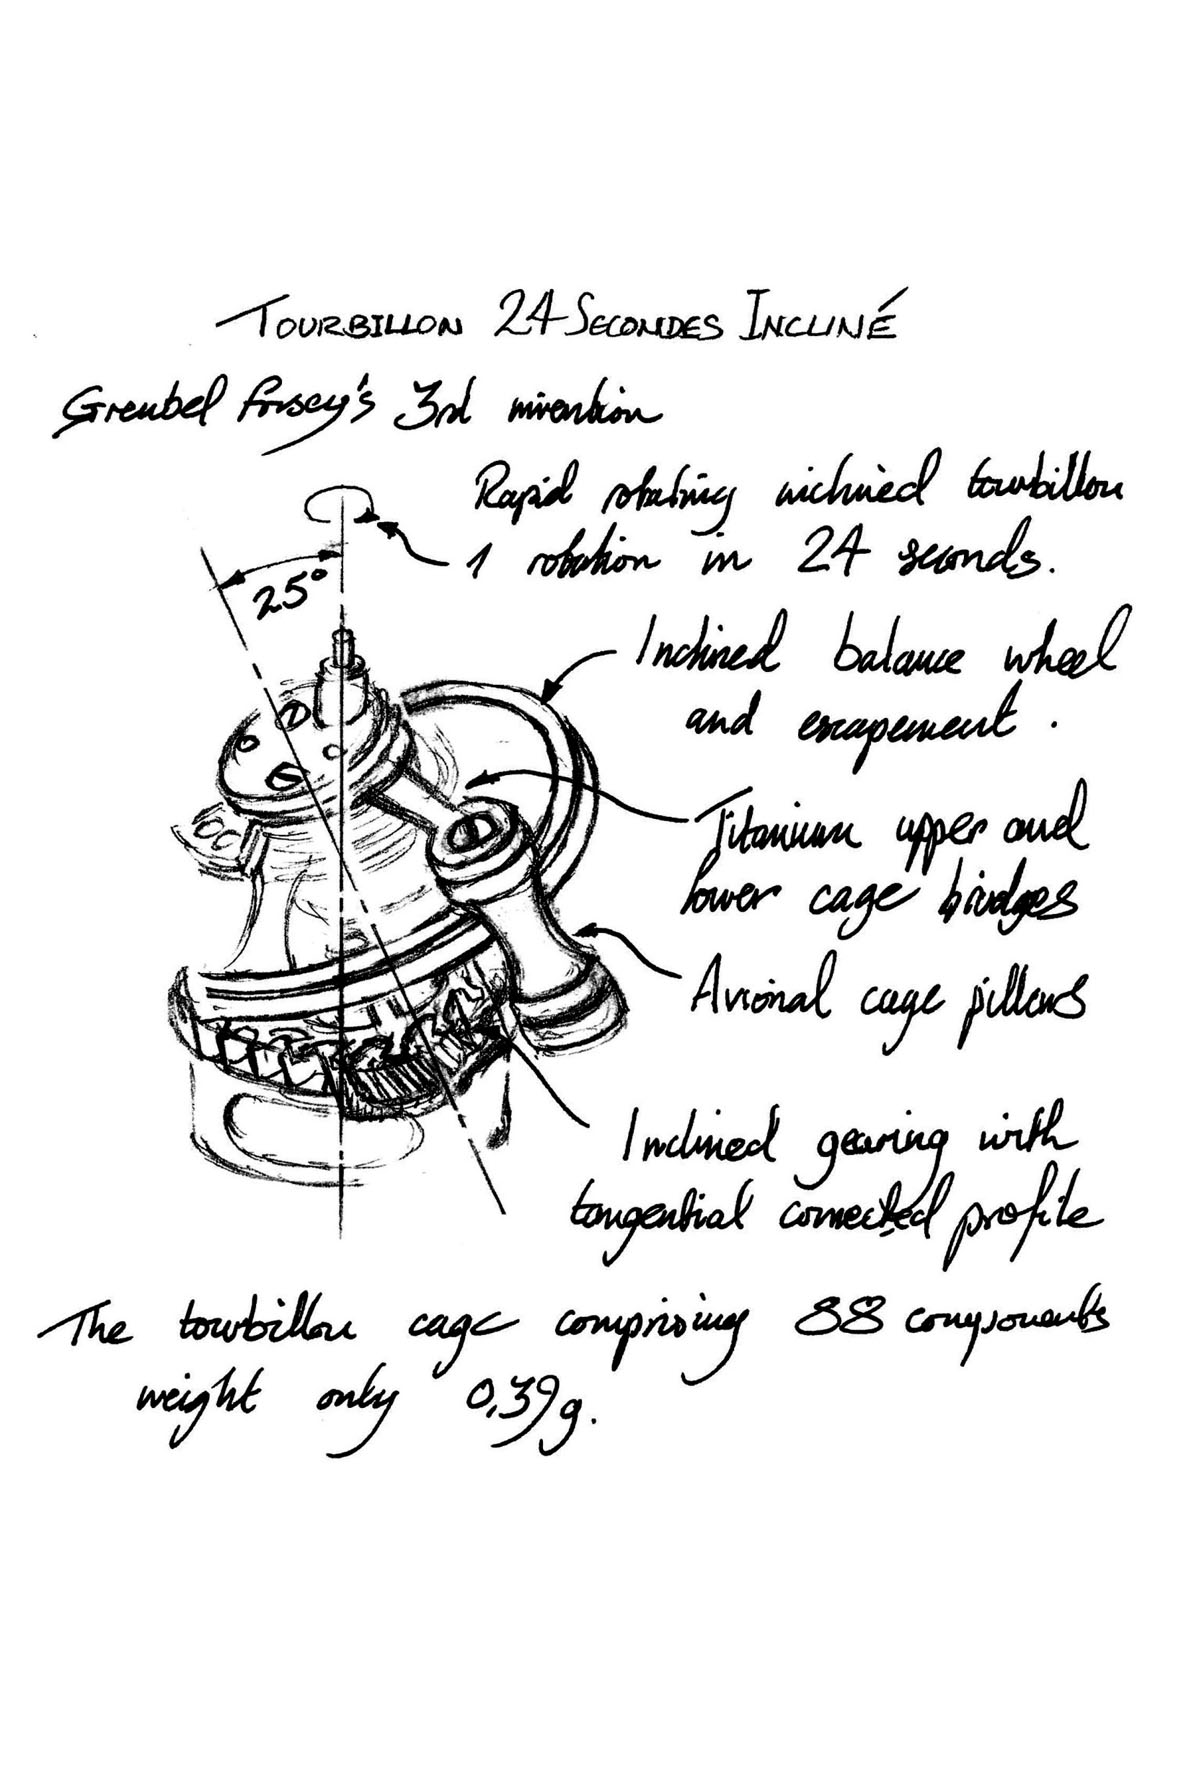 TOURBILLON 24 SECONDES INCLINÉ
Greubel Forsey's 3rd invention
Rapid rotating inclined tourbillon
1 rotation in 24 seconds.
25°
Inclined balance wheel
and escapement.
Titanium upper and
lower cage bridges
Avional cage pillars
Inclined gearing with
tangential corrected profile
The tourbillon cage comprising 88 components
weight only 0,39g.